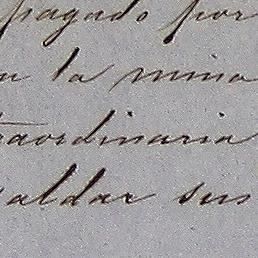 pagado por
la mina
traordinaria
aldar sus